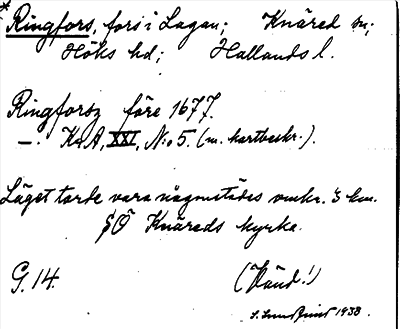 * Ringfors, fors i Lagan; Knäred sn;
Höks hd; Hallands l.
Ringforsz före 1677.
—. KrA, XXI, N:o 5. (m. kartbeskr.).
Läget torde vara någonstädes omkr. 3 km.
SÖ Knäreds kyrka.
G. 14. (Vänd!)
1938